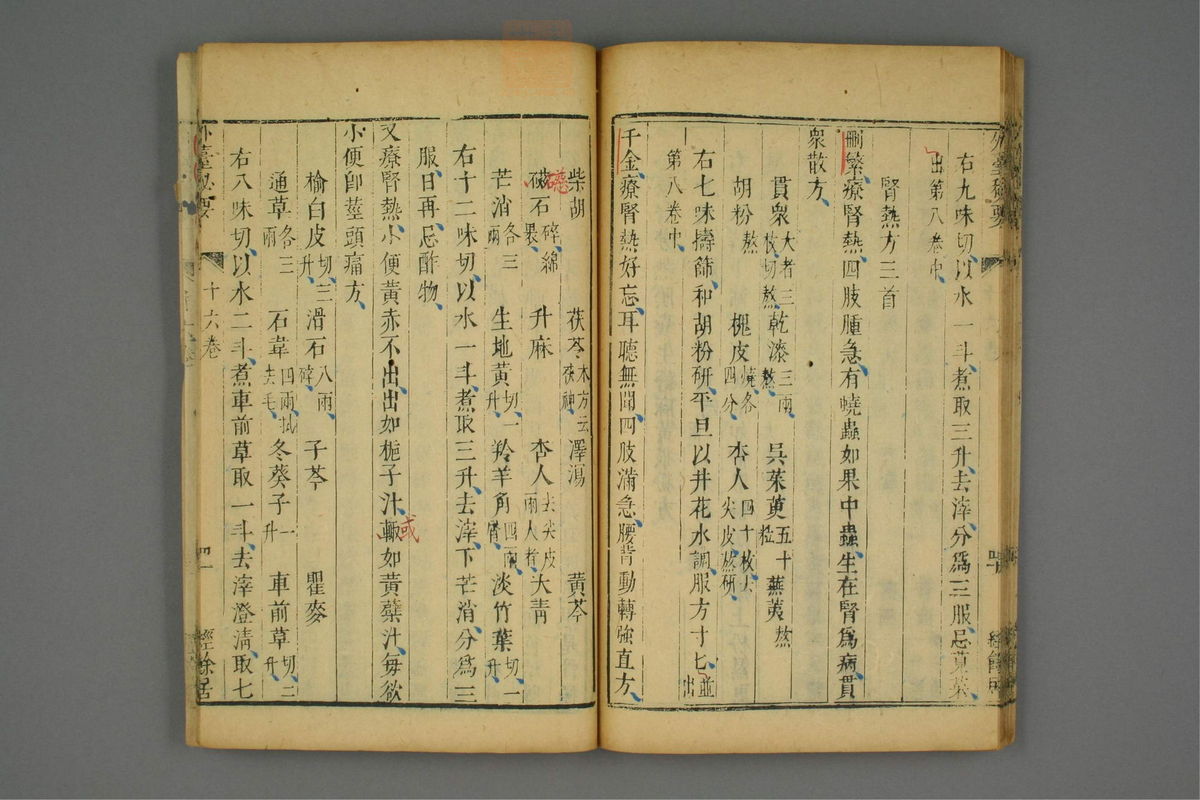 外臺秘要
右九味切以水一斗煮取三升去滓分爲三服忌蕪荑
出第八卷中
腎熱方三首
刪繁療腎熱四肢腫急有蟯蟲如果中蟲生在腎爲病貫
衆散方
貫衆大者三枚切熬 乾漆三兩熬 吳茱萸五十粒 蕪荑熬
胡粉熬 槐皮燒各四分 杏人四十枚去尖皮熬研
右七味擣篩和胡粉研平旦以井花水調服方寸匕並出
第八卷中
千金療腎熱好忘耳聽無聞四肢滿急腰背動轉強直方
柴胡 茯苓本方云茯神 澤瀉 黃芩
磁石碎綿裹 升麻 杏人去尖皮兩人者 大靑
芒消各三兩 生地黃切一升 羚羊角四兩屑 淡竹葉切一升
右十二味切以水一斗煮取三升去滓下芒消分爲三
服日再忌酢物
又療腎熱小便黃赤不出出如梔子汁輙或如黃蘗汁每欲
小便卽莖頭痛方
榆白皮切三升 滑石八兩碎 子芩 瞿麥
通草各三兩 石韋四兩拭去毛 冬葵子一升 車前草切二升
右八味切以水二斗煮車前草取一斗去滓澄淸取七
外臺秘要 十六卷 四一 經餘居